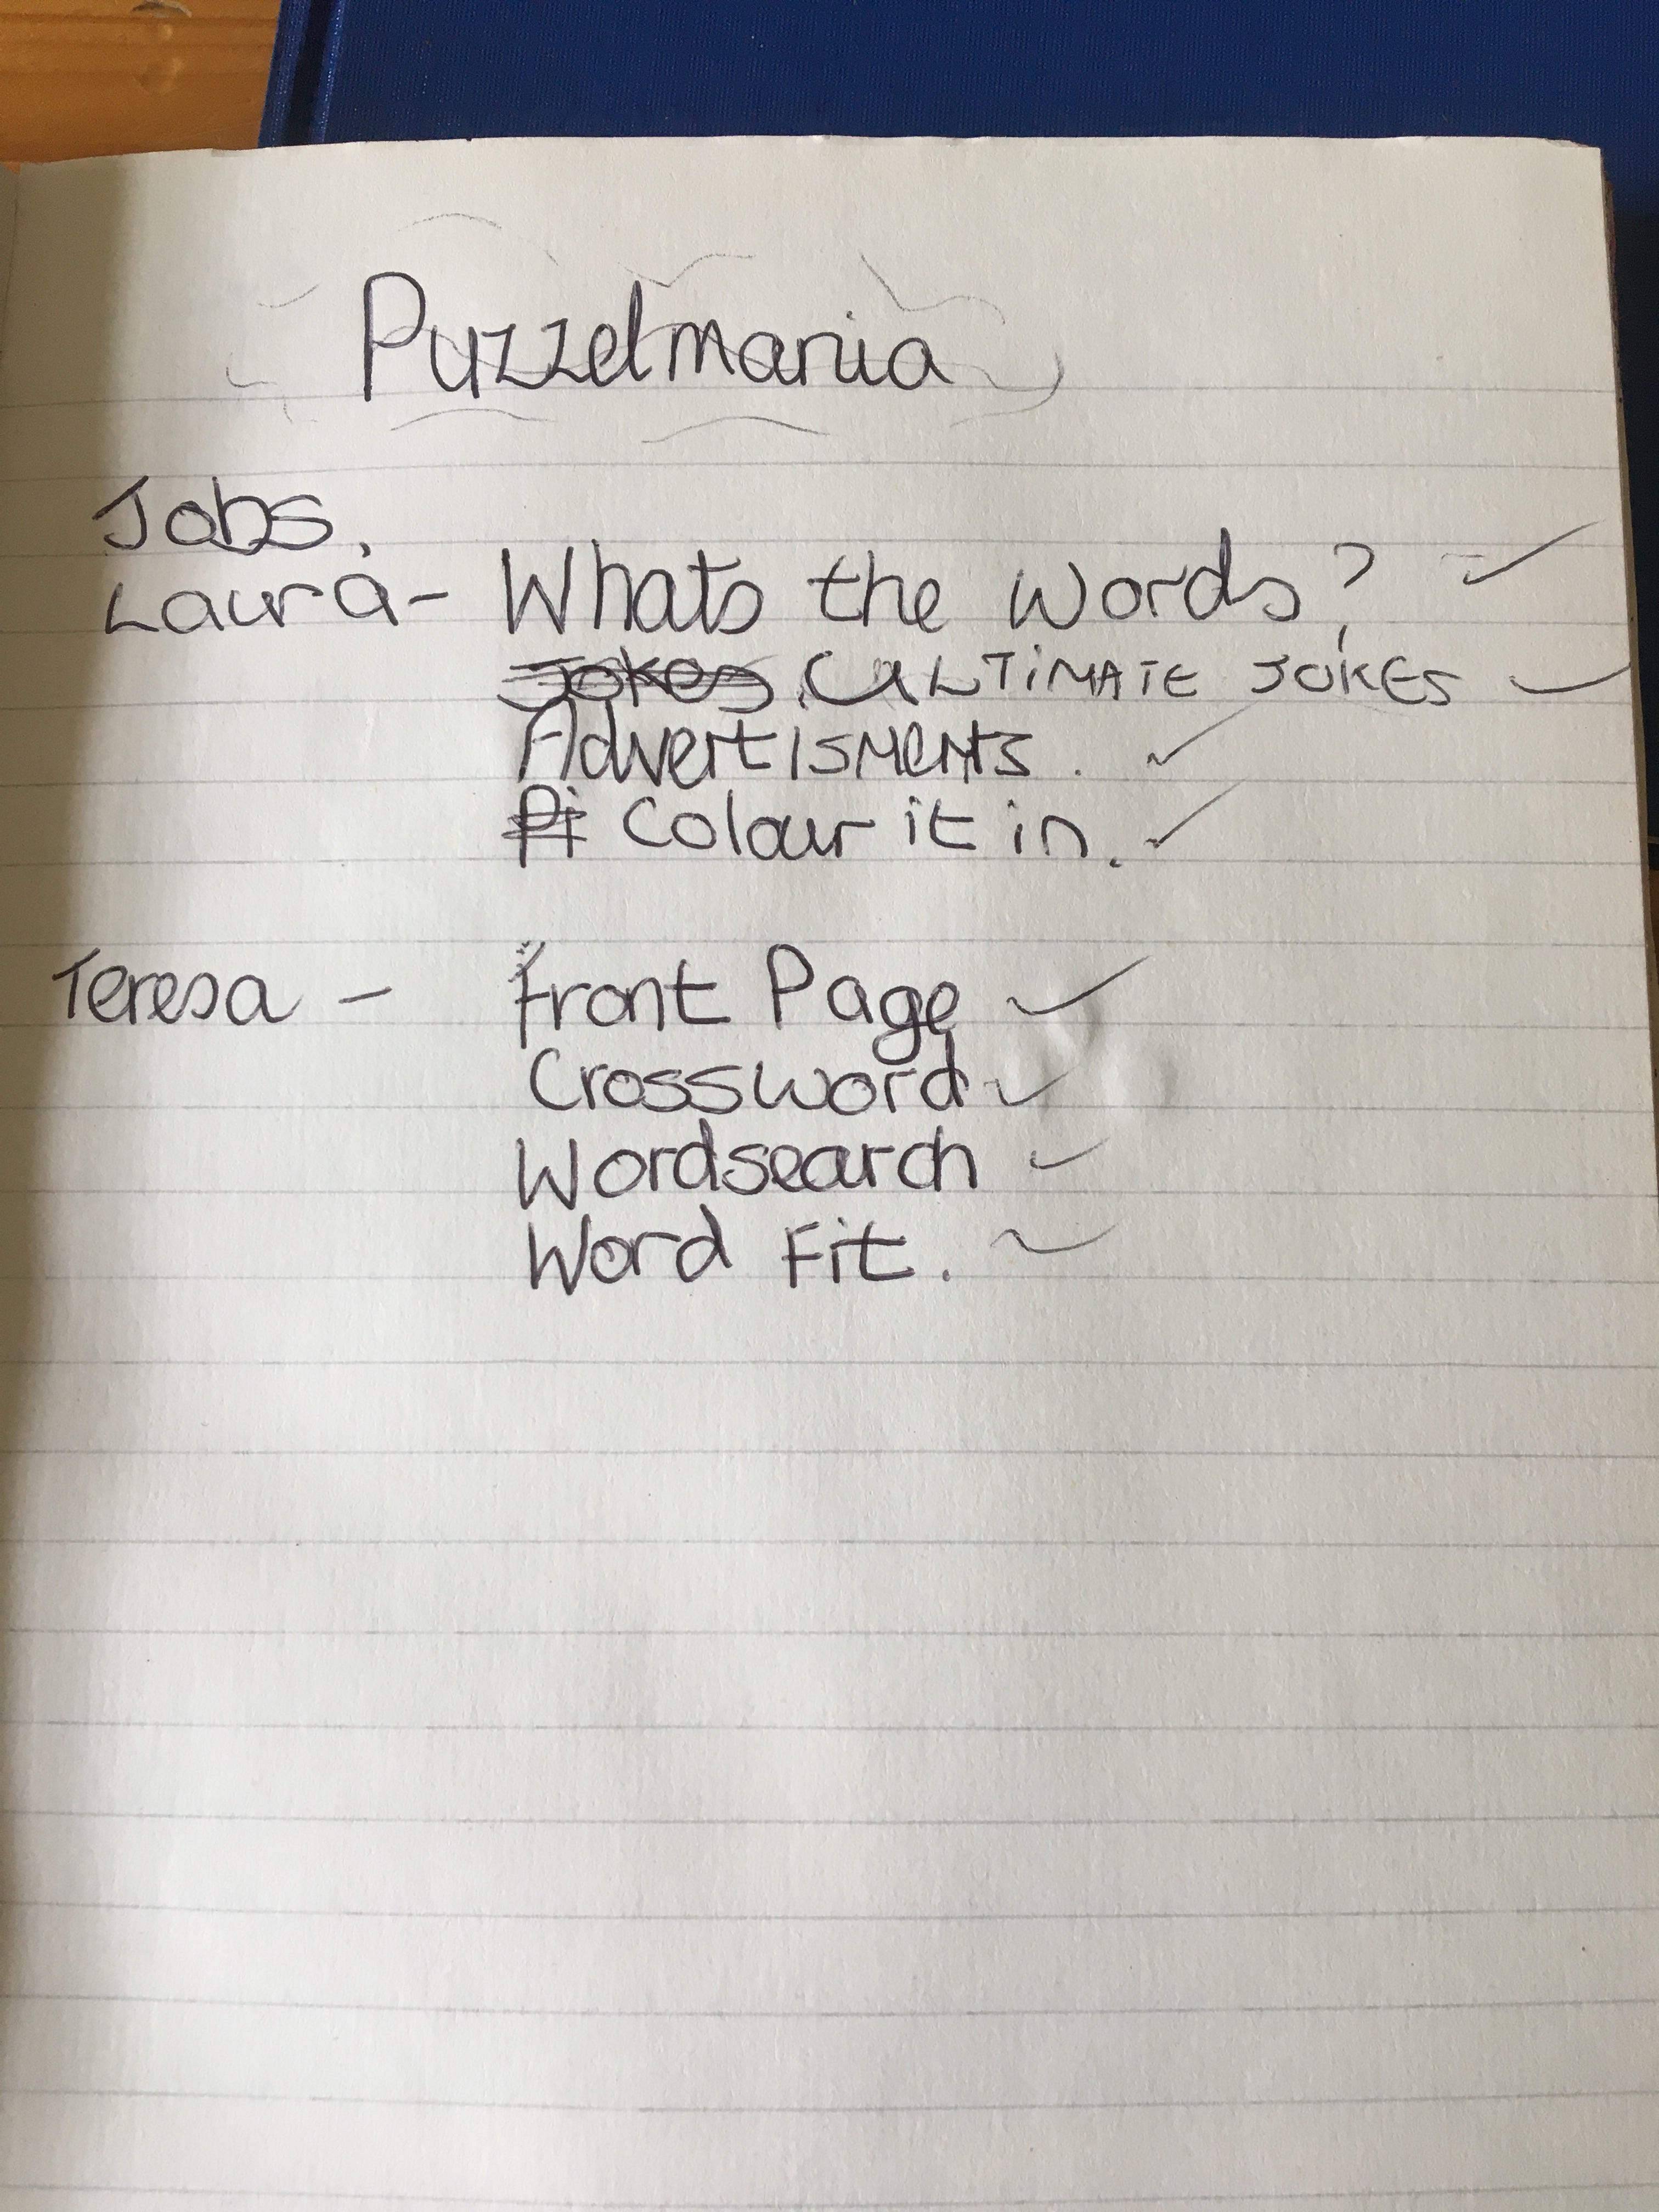 Puzzelmania
Jobs.
Laura - Whats the words?
Jokes ULTIMATE JOKES
Advertisments.
Pi Colour it in.
Teresa - Front Page
Crossword
Wordsearch
Word Fit.